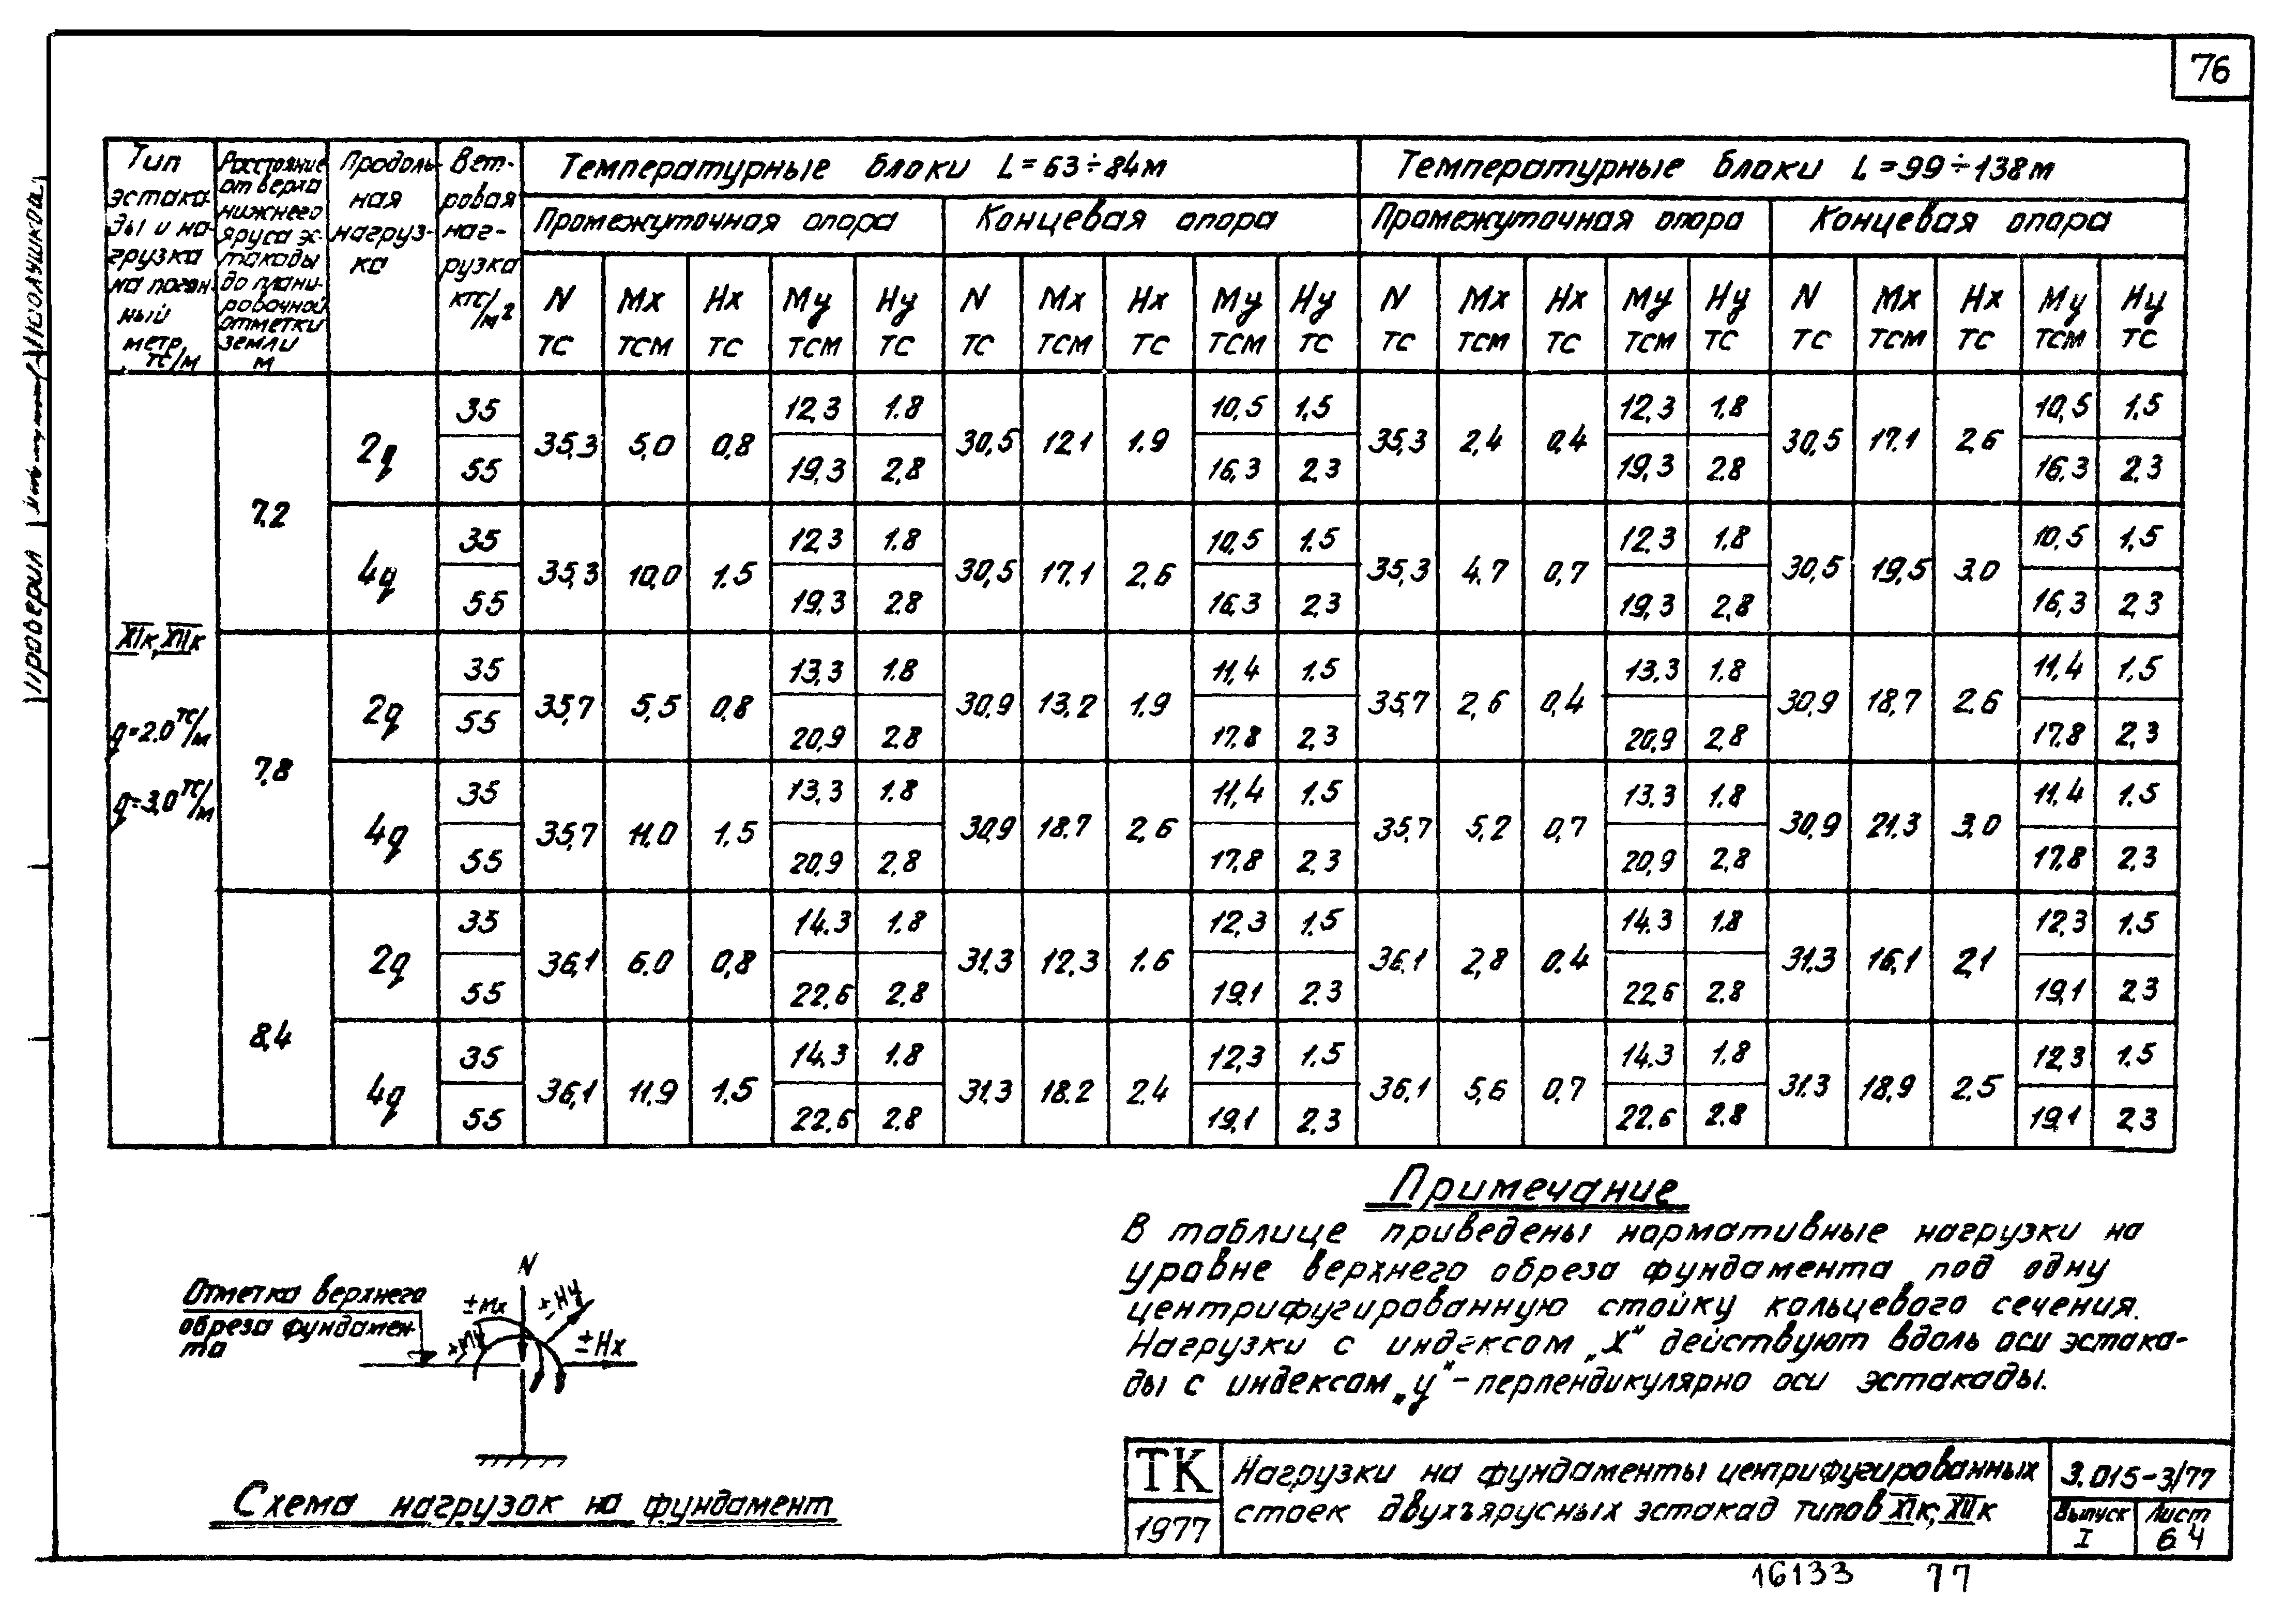 76
Тип эстакады и нагрузка на погонный метр, тс/м
Расстояние от верха нижнего яруса эстакады до планировочной отметки земли м
Продольная нагрузка
Ветровая нагрузка кгс/м²
Температурные блоки L=63÷84м
Температурные блоки L=99÷138м
Промежуточная опора
Концевая опора
Промежуточная опора
Концевая опора
N тс Mx тсм Hx тс My тсм Hy тс N тс Mx тсм Hx тс My тсм Hy тс N тс Mx тсм Hx тс My тсм Hy тс N тс Mx тсм Hx тс My тсм Hy тс
XIк, XIIк
q=2.0 тс/м
q=3,0 тс/м
7.2
2q 35 35,3 5,0 0,8 12,3 1.8 30,5 12,1 1.9 10,5 1,5 35,3 2,4 0,4 12,3 1.8 30,5 17.1 2,6 10,5 1.5
55 19,3 2,8 16,3 2.3 19,3 2.8 16,3 2,3
4q 35 35,3 10,0 1.5 12,3 1.8 30,5 17.1 2,6 10,5 1.5 35,3 4.7 0,7 12,3 1.8 30,5 19,5 3.0 10,5 1,5
55 19,3 2.8 16,3 2,3 19,3 2,8 16,3 2,3
7.8
2q 35 35,7 5,5 0,8 13,3 1.8 30.9 13,2 1.9 11,4 1.5 35,7 2,6 0,4 13.3 1.8 30,9 18,7 2.6 11,4 1,5
55 20,9 2.8 17,8 2,3 20,9 2,8 17,8 2,3
4q 35 35,7 11,0 1,5 13,3 1.8 30,9 18.7 2,6 11,4 1.5 35,7 5,2 0,7 13,3 1.8 30,9 21,3 3,0 11,4 1.5
55 20,9 2,8 17,8 2,3 20,9 2,8 17,8 2,3
8,4
2q 35 36,1 6.0 0,8 14.3 1.8 31.3 12,3 1.6 12,3 1.5 36,1 2,8 0.4 14.3 1.8 31.3 16,1 2,1 12,3 1.5
55 22,6 2,8 19,1 2.3 22,6 2.8 19,1 2,3
4q 35 36,1 11,9 1.5 14.3 1.8 31.3 18.2 2.4 12,3 1.5 36,1 5,6 0,7 14.3 1.8 31.3 18,9 2.5 12,3 1.5
55 22,6 2.8 19,1 2.3 22.6 2.8 19,1 2,3
Примечание
В таблице приведены нормативные нагрузки на
уровне верхнего обреза фундамента под одну
центрифугированную стойку кольцевого сечения.
Нагрузки с индексом „x" действуют вдоль оси эстака-
ды с индексом „y" – перпендикулярно оси эстакады.
Отметка верхнего
обреза фундамен-
та
N
±Mx
±Hy
±My
±Hx
Схема нагрузок на фундамент
ТК
1977
Нагрузки на фундаменты центрифугированных
стоек двухъярусных эстакад типов XIк, XIIк
3.015-3/77
Выпуск I
Лист 64
16133 77
Проверил